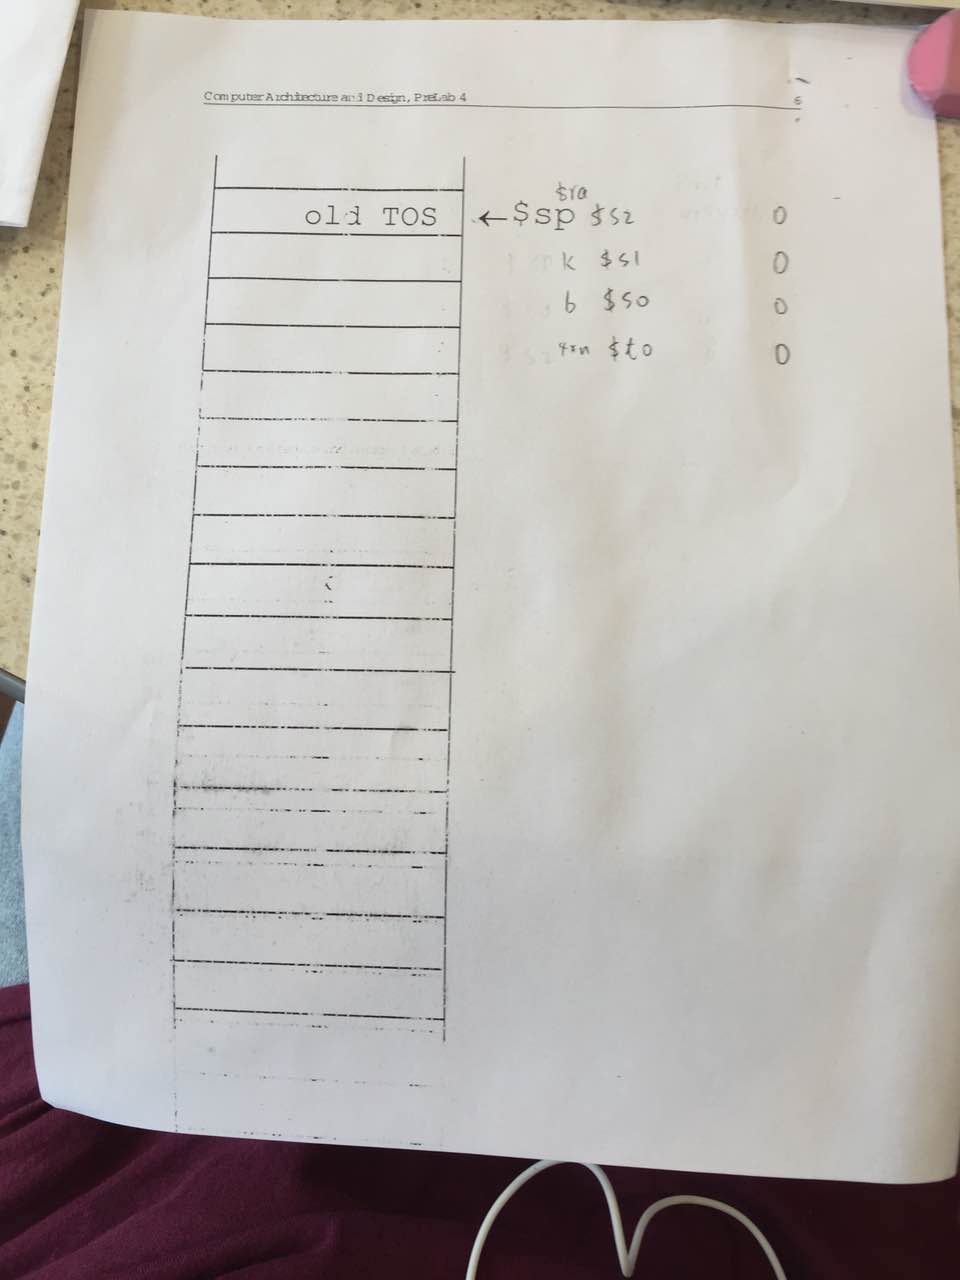 Computer Architecture and Design, PreLab 4 6
$ra
old TOS ←$sp $s2 0
k $s1 0
b $s0 0
4xn $t0 0